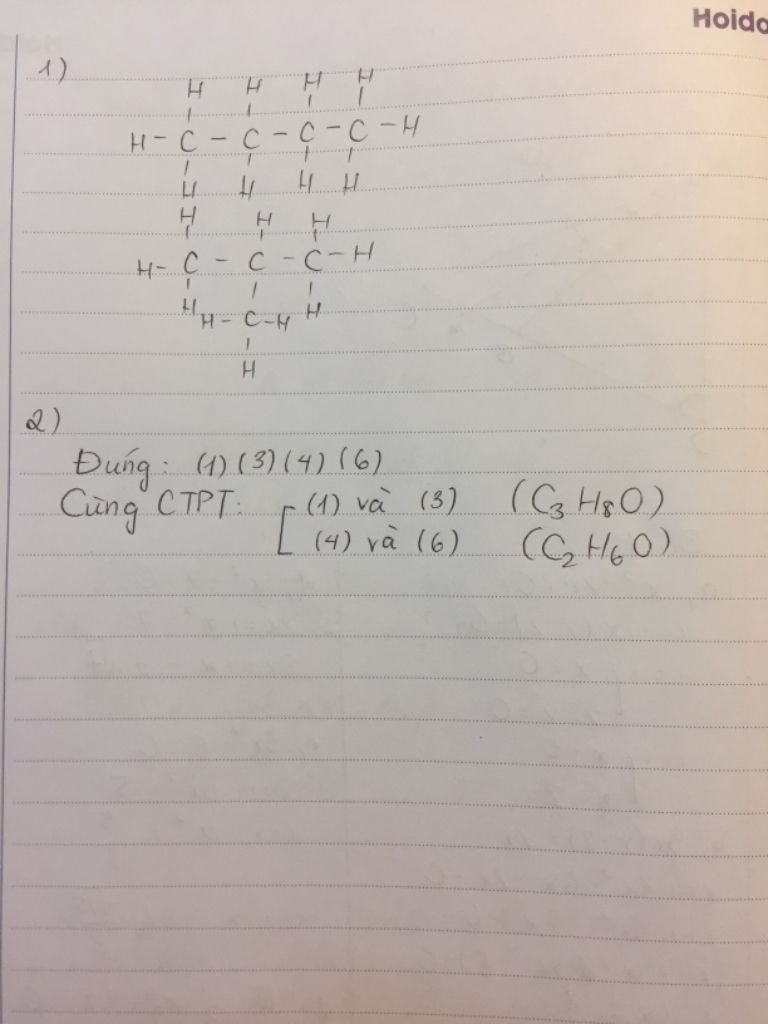 Hoido
1)
H H H H
H - C - C - C - C - H
H H H H
H H H
H - C - C - C - H
H H - C - H H
H
2)
Đúng: (1) (3) (4) (6)
Cùng CTPT: [ (1) và (3) (C3H8O)
(4) và (6) (C2H6O)